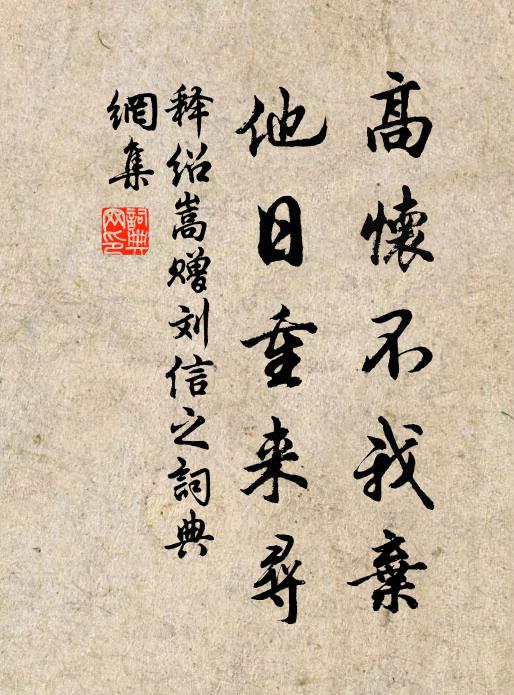 高懷不我棄
他日重来尋
释绍嵩赠刘信之詞典
網集
詞典網印